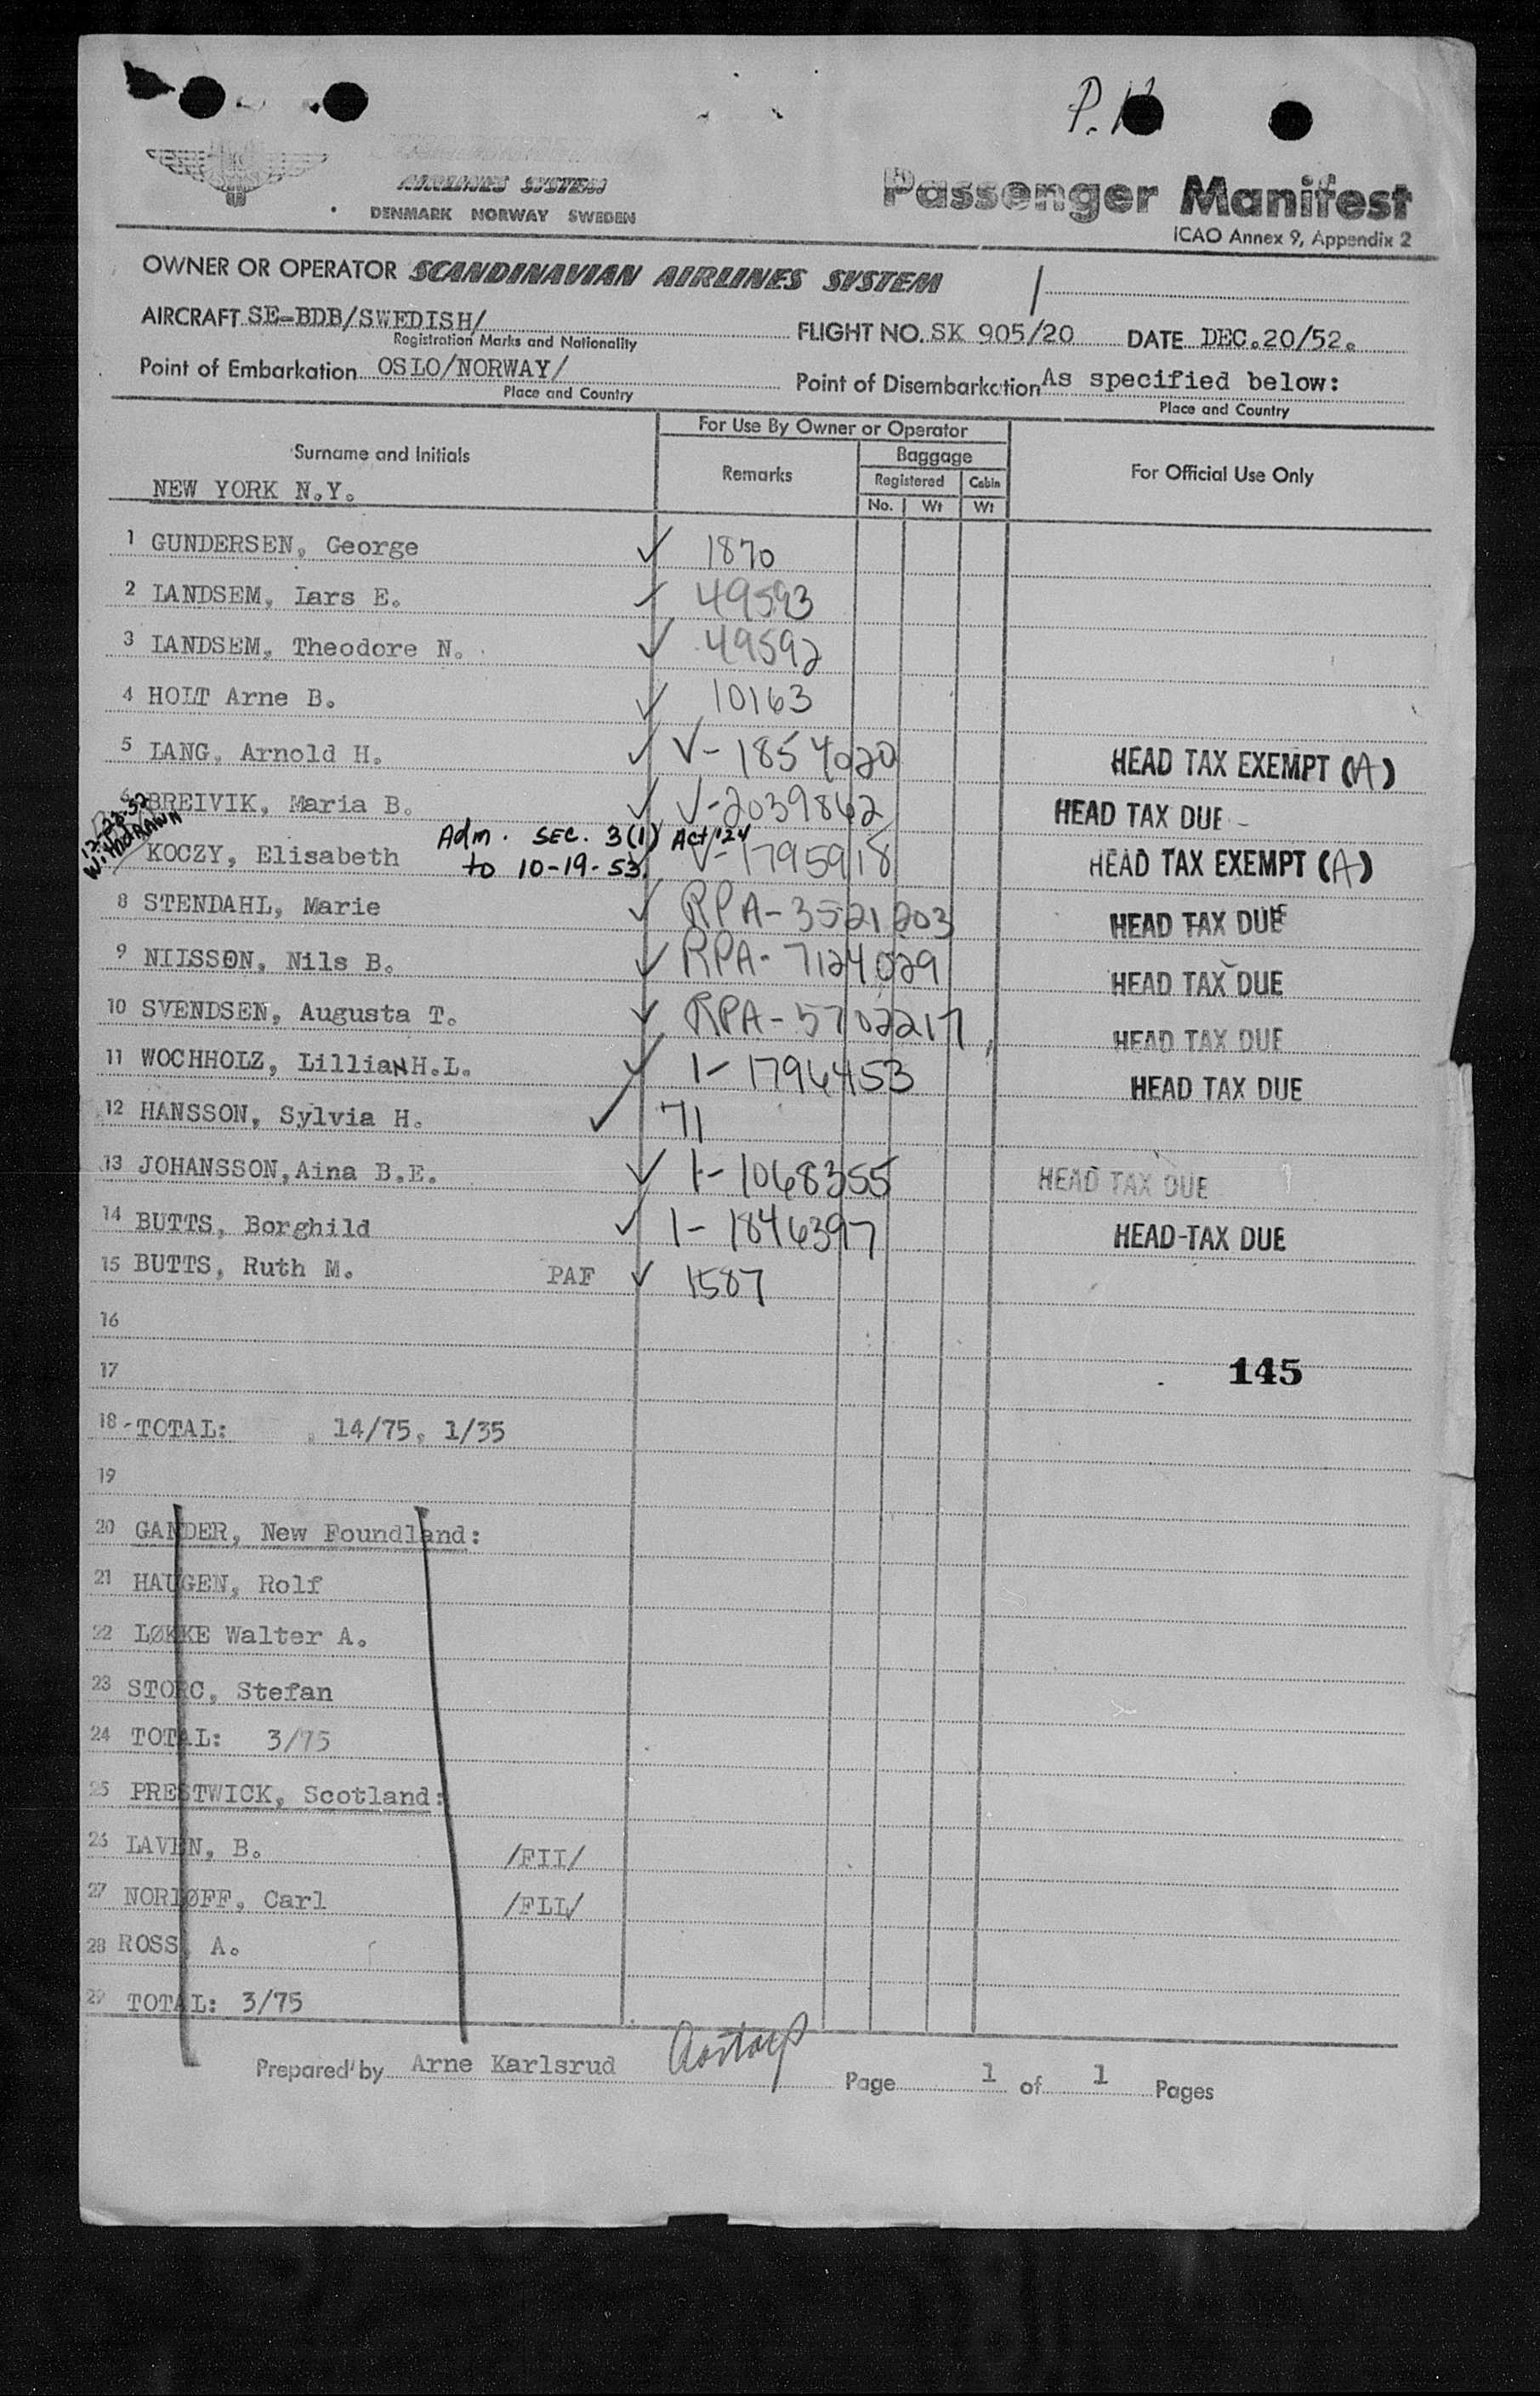 P.
AIRLINES SYSTEM
DENMARK NORWAY SWEDEN
Passenger Manifest
ICAO Annex 9, Appendix 2
OWNER OR OPERATOR SCANDINAVIAN AIRLINES SYSTEM
AIRCRAFT SE-BDB/SWEDISH/ FLIGHT NO. SK 905/20 DATE DEC.20/52.
Registration Marks and Nationality
Point of Embarkation OSLO/NORWAY/ Point of Disembarkation As specified below:
Place and Country Place and Country
For Use By Owner or Operator
Surname and Initials Remarks Baggage For Official Use Only
Registered Cabin
NEW YORK N.Y. No. Wt Wt
1 GUNDERSEN, George ✓ 1870
2 LANDSEM, Lars E. ✓ 49593
3 LANDSEM, Theodore N. ✓ 49592
4 HOLT Arne B. ✓ 10163
5 LANG, Arnold H. ✓ V-1854020 HEAD TAX EXEMPT (A)
6 BREIVIK, Maria B. ✓ V-2039862 HEAD TAX DUE
12-23-52
WITHDRAWN
Adm. SEC. 3(1) Act '24
KOCZY, Elisabeth to 10-19-53. V-1795918 HEAD TAX EXEMPT (A)
8 STENDAHL, Marie ✓ RPA-3521203 HEAD TAX DUE
9 NILSSON, Nils B. ✓ RPA-7124029 HEAD TAX DUE
10 SVENDSEN, Augusta T. ✓ RPA-5702217 HEAD TAX DUE
11 WOCHHOLZ, Lillian H.L. ✓ 1-1796453 HEAD TAX DUE
12 HANSSON, Sylvia H. ✓ 71
13 JOHANSSON,Aina B.E. ✓ 1-1068355 HEAD TAX DUE
14 BUTTS, Borghild ✓ 1-1846397 HEAD-TAX DUE
15 BUTTS, Ruth M. PAF ✓ 1587
16
17 145
18 TOTAL: 14/75, 1/35
19
20 GANDER, New Foundland:
21 HAUGEN, Rolf
22 LØKKE Walter A.
23 STORC, Stefan
24 TOTAL: 3/75
25 PRESTWICK, Scotland:
26 LAVEN, B. /FII/
27 NORLØFF, Carl /FLI/
28 ROSS, A.
29 TOTAL: 3/75
Prepared by Arne Karlsrud Page 1 of 1 Pages